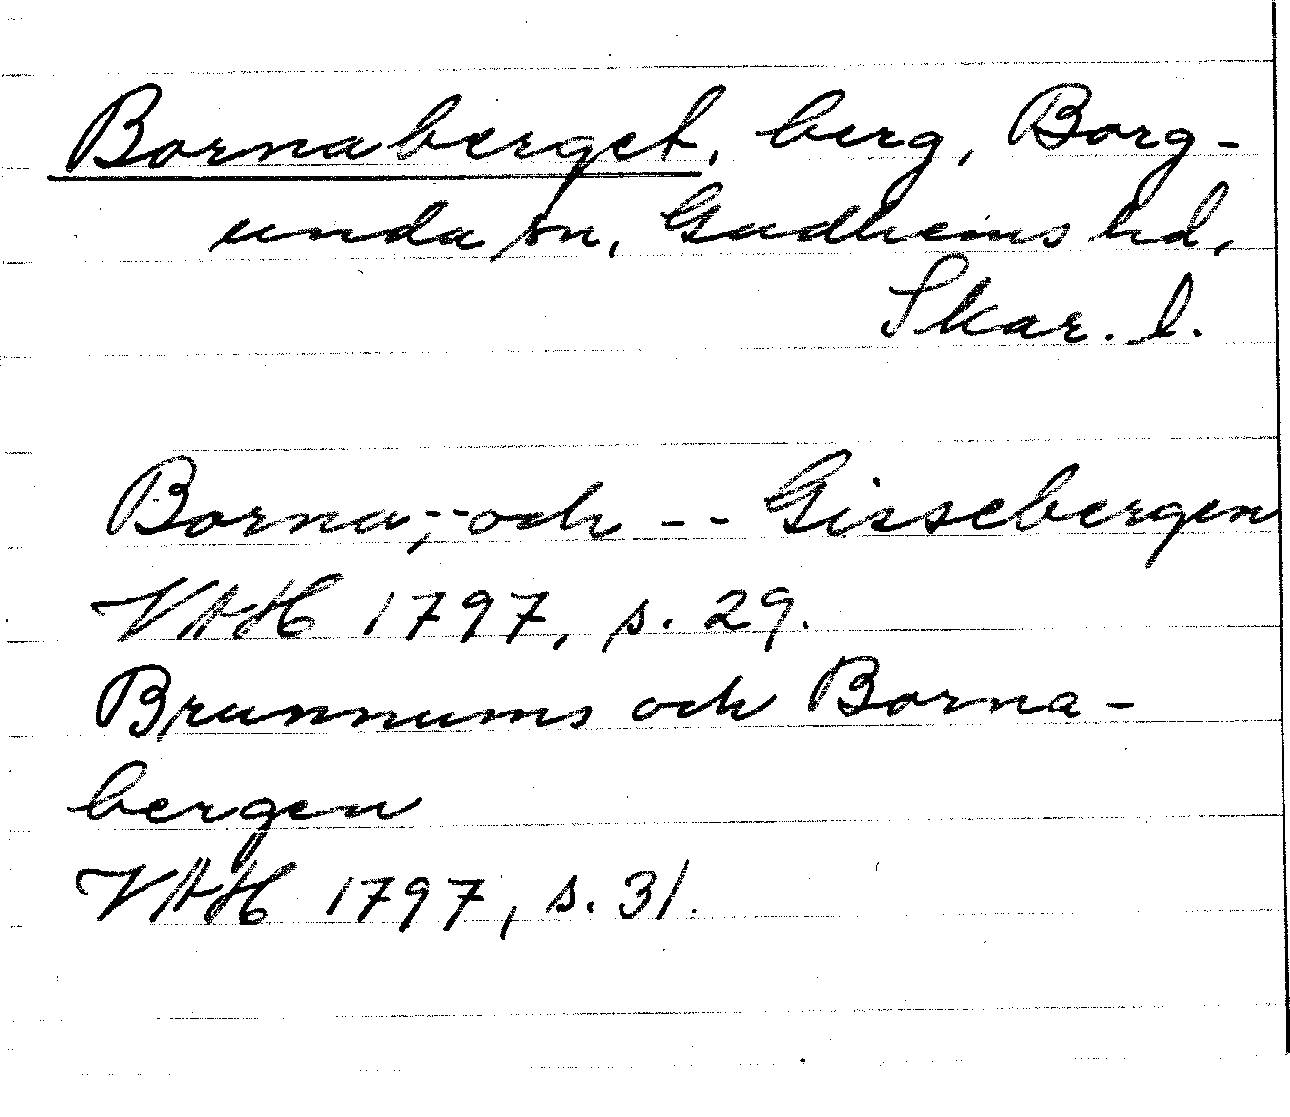 Bornaberget, berg, Borg-
unda sn, Gudhems hd,
Skar. l.
Borna,-- och -- Gissebergen
VAH 1797, s. 29.
Brunnums och Borna-
bergen
VAH 1797, s. 31.